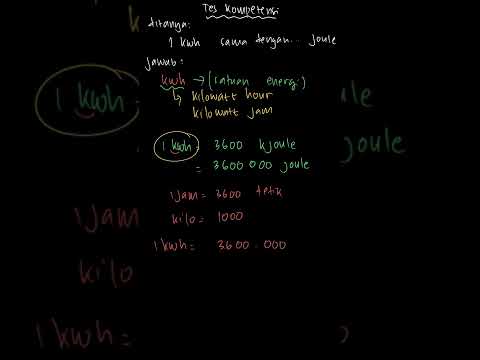 Tes Kompetensi
ditanya:
1 kwh sama dengan... joule
jawab:
kwh → (satuan energi)
↳ kilowatt hour
kilowatt jam
1 kwh = 3600 kjoule
= 3600 000 joule
1 jam = 3600 detik
kilo = 1000
1 kwh = 3600.000